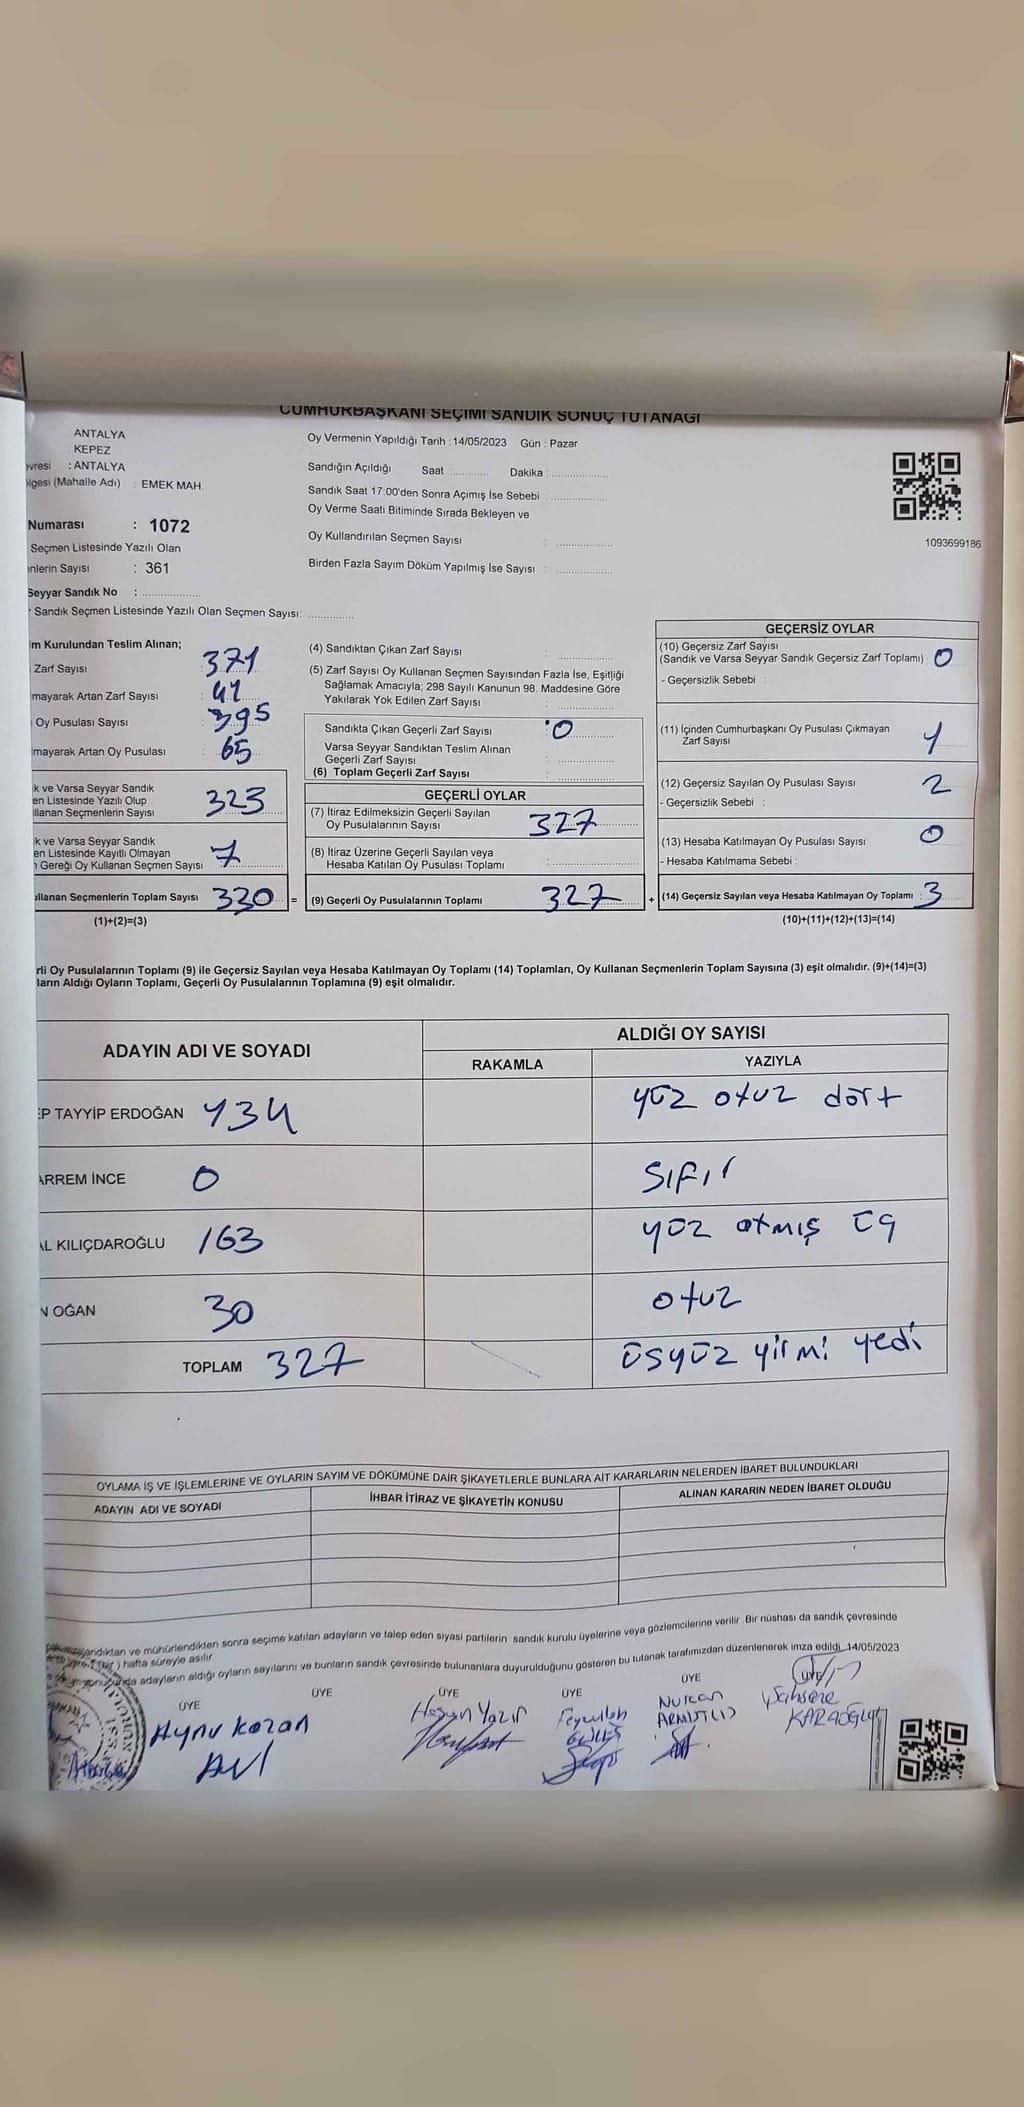 CUMHURBAŞKANI SEÇİMİ SANDIK SONUÇ TUTANAĞI
ANTALYA
KEPEZ
vresi : ANTALYA
lgesi (Mahalle Adı) : EMEK MAH.
Numarası : 1072
Seçmen Listesinde Yazılı Olan
nlerin Sayısı : 361
Seyyar Sandık No :
Sandık Seçmen Listesinde Yazılı Olan Seçmen Sayısı:
Oy Vermenin Yapıldığı Tarih : 14/05/2023 Gün : Pazar
Sandığın Açıldığı Saat : Dakika :
Sandık Saat 17:00'den Sonra Açımış İse Sebebi :
Oy Verme Saati Bitiminde Sırada Bekleyen ve
Oy Kullandırılan Seçmen Sayısı :
Birden Fazla Sayım Döküm Yapılmış İse Sayısı :
1093699186
m Kurulundan Teslim Alınan;
Zarf Sayısı : 371
mayarak Artan Zarf Sayısı : 41
Oy Pusulası Sayısı : 395
mayarak Artan Oy Pusulası : 65
k ve Varsa Seyyar Sandık
en Listesinde Yazılı Olup
llanan Seçmenlerin Sayısı 323
k ve Varsa Seyyar Sandık
en Listesinde Kayıtlı Olmayan
Gereği Oy Kullanan Seçmen Sayısı 7
ullanan Seçmenlerin Toplam Sayısı 330 =
(1)+(2)=(3)
(4) Sandıktan Çıkan Zarf Sayısı :
(5) Zarf Sayısı Oy Kullanan Seçmen Sayısından Fazla İse, Eşitliği
Sağlamak Amacıyla; 298 Sayılı Kanunun 98. Maddesine Göre
Yakılarak Yok Edilen Zarf Sayısı :
Sandıkta Çıkan Geçerli Zarf Sayısı : 0
Varsa Seyyar Sandıktan Teslim Alınan
Geçerli Zarf Sayısı :
(6) Toplam Geçerli Zarf Sayısı :
GEÇERLİ OYLAR
(7) İtiraz Edilmeksizin Geçerli Sayılan
Oy Pusulalarının Sayısı 327
(8) İtiraz Üzerine Geçerli Sayılan veya
Hesaba Katılan Oy Pusulası Toplamı :
(9) Geçerli Oy Pusulalarının Toplamı 327 +
GEÇERSİZ OYLAR
(10) Geçersiz Zarf Sayısı
(Sandık ve Varsa Seyyar Sandık Geçersiz Zarf Toplamı) 0
- Geçersizlik Sebebi :
(11) İçinden Cumhurbaşkanı Oy Pusulası Çıkmayan
Zarf Sayısı 1
(12) Geçersiz Sayılan Oy Pusulası Sayısı 2
- Geçersizlik Sebebi :
(13) Hesaba Katılmayan Oy Pusulası Sayısı 0
- Hesaba Katılmama Sebebi :
(14) Geçersiz Sayılan veya Hesaba Katılmayan Oy Toplamı : 3
(10)+(11)+(12)+(13)=(14)
rli Oy Pusulalarının Toplamı (9) ile Geçersiz Sayılan veya Hesaba Katılmayan Oy Toplamı (14) Toplamları, Oy Kullanan Seçmenlerin Toplam Sayısına (3) eşit olmalıdır. (9)+(14)=(3)
ların Aldığı Oyların Toplamı, Geçerli Oy Pusulalarının Toplamına (9) eşit olmalıdır.
ADAYIN ADI VE SOYADI ALDIĞI OY SAYISI
RAKAMLA YAZIYLA
EP TAYYİP ERDOĞAN 134 yüz otuz dört
ARREM İNCE 0 sıfır
AL KILIÇDAROĞLU 163 yüz atmış üç
N OĞAN 30 otuz
TOPLAM 327 üsyüz yirmi yedi
OYLAMA İŞ VE İŞLEMLERİNE VE OYLARIN SAYIM VE DÖKÜMÜNE DAİR ŞİKAYETLERLE BUNLARA AİT KARARLARIN NELERDEN İBARET BULUNDUKLARI
ADAYIN ADI VE SOYADI İHBAR İTİRAZ VE ŞİKAYETİN KONUSU ALINAN KARARIN NEDEN İBARET OLDUĞU
landıktan ve mühürlendikten sonra seçime katılan adayların ve talep eden siyasi partilerin sandık kurulu üyelerine veya gözlemcilerine verilir. Bir nüshası da sandık çevresinde
(bir) hafta süreyle asılır.
adayların aldığı oyların sayılarını ve bunların sandık çevresinde bulunanlara duyurulduğunu gösteren bu tutanak tarafımızdan düzenlenerek imza edildi. 14/05/2023
ÜYE ÜYE ÜYE ÜYE ÜYE ÜYE
Aynur Kozan
Hasan Yazır
Nurcan
Şahsene
KARAOĞLU